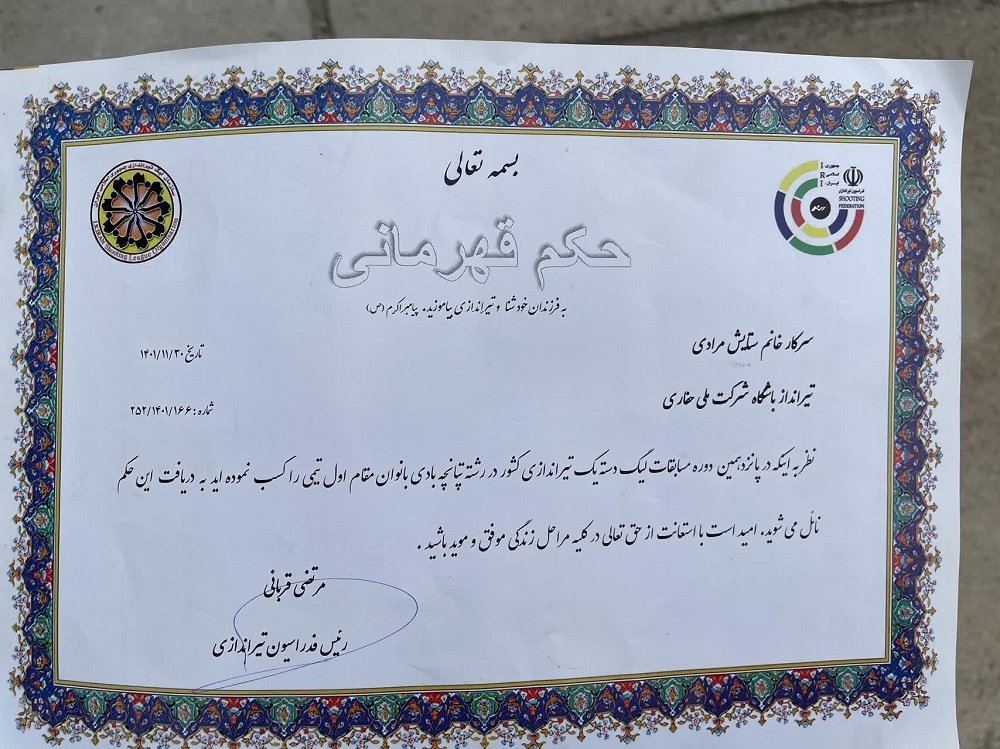 بسمه تعالی
جمهوری
اسلامی
ایران
I
R
I
فدراسیون تیراندازی
SHOOTING
FEDERATION
حکم قهرمانی
به فرزندان خود شنا و تیراندازی بیاموزید. پیامبر اکرم (ص)
سرکار خانم ستایش مرادی
تاریخ ۱۴۰۱/۱۱/۳۰
تیرانداز باشگاه شرکت ملی حفاری
شماره : ۲۵۲/۱۴۰۱/۱۶۶
نظر به اینکه در پانزدهمین دوره مسابقات لیگ دسته یک تیراندازی کشور در رشته تپانچه بادی بانوان مقام اول تیمی را کسب نموده اید به دریافت این حکم
نائل می شوید. امید است با استعانت از حق تعالی در کلیه مراحل زندگی موفق و موید باشید .
مرتضی قربانی
رئیس فدراسیون تیراندازی